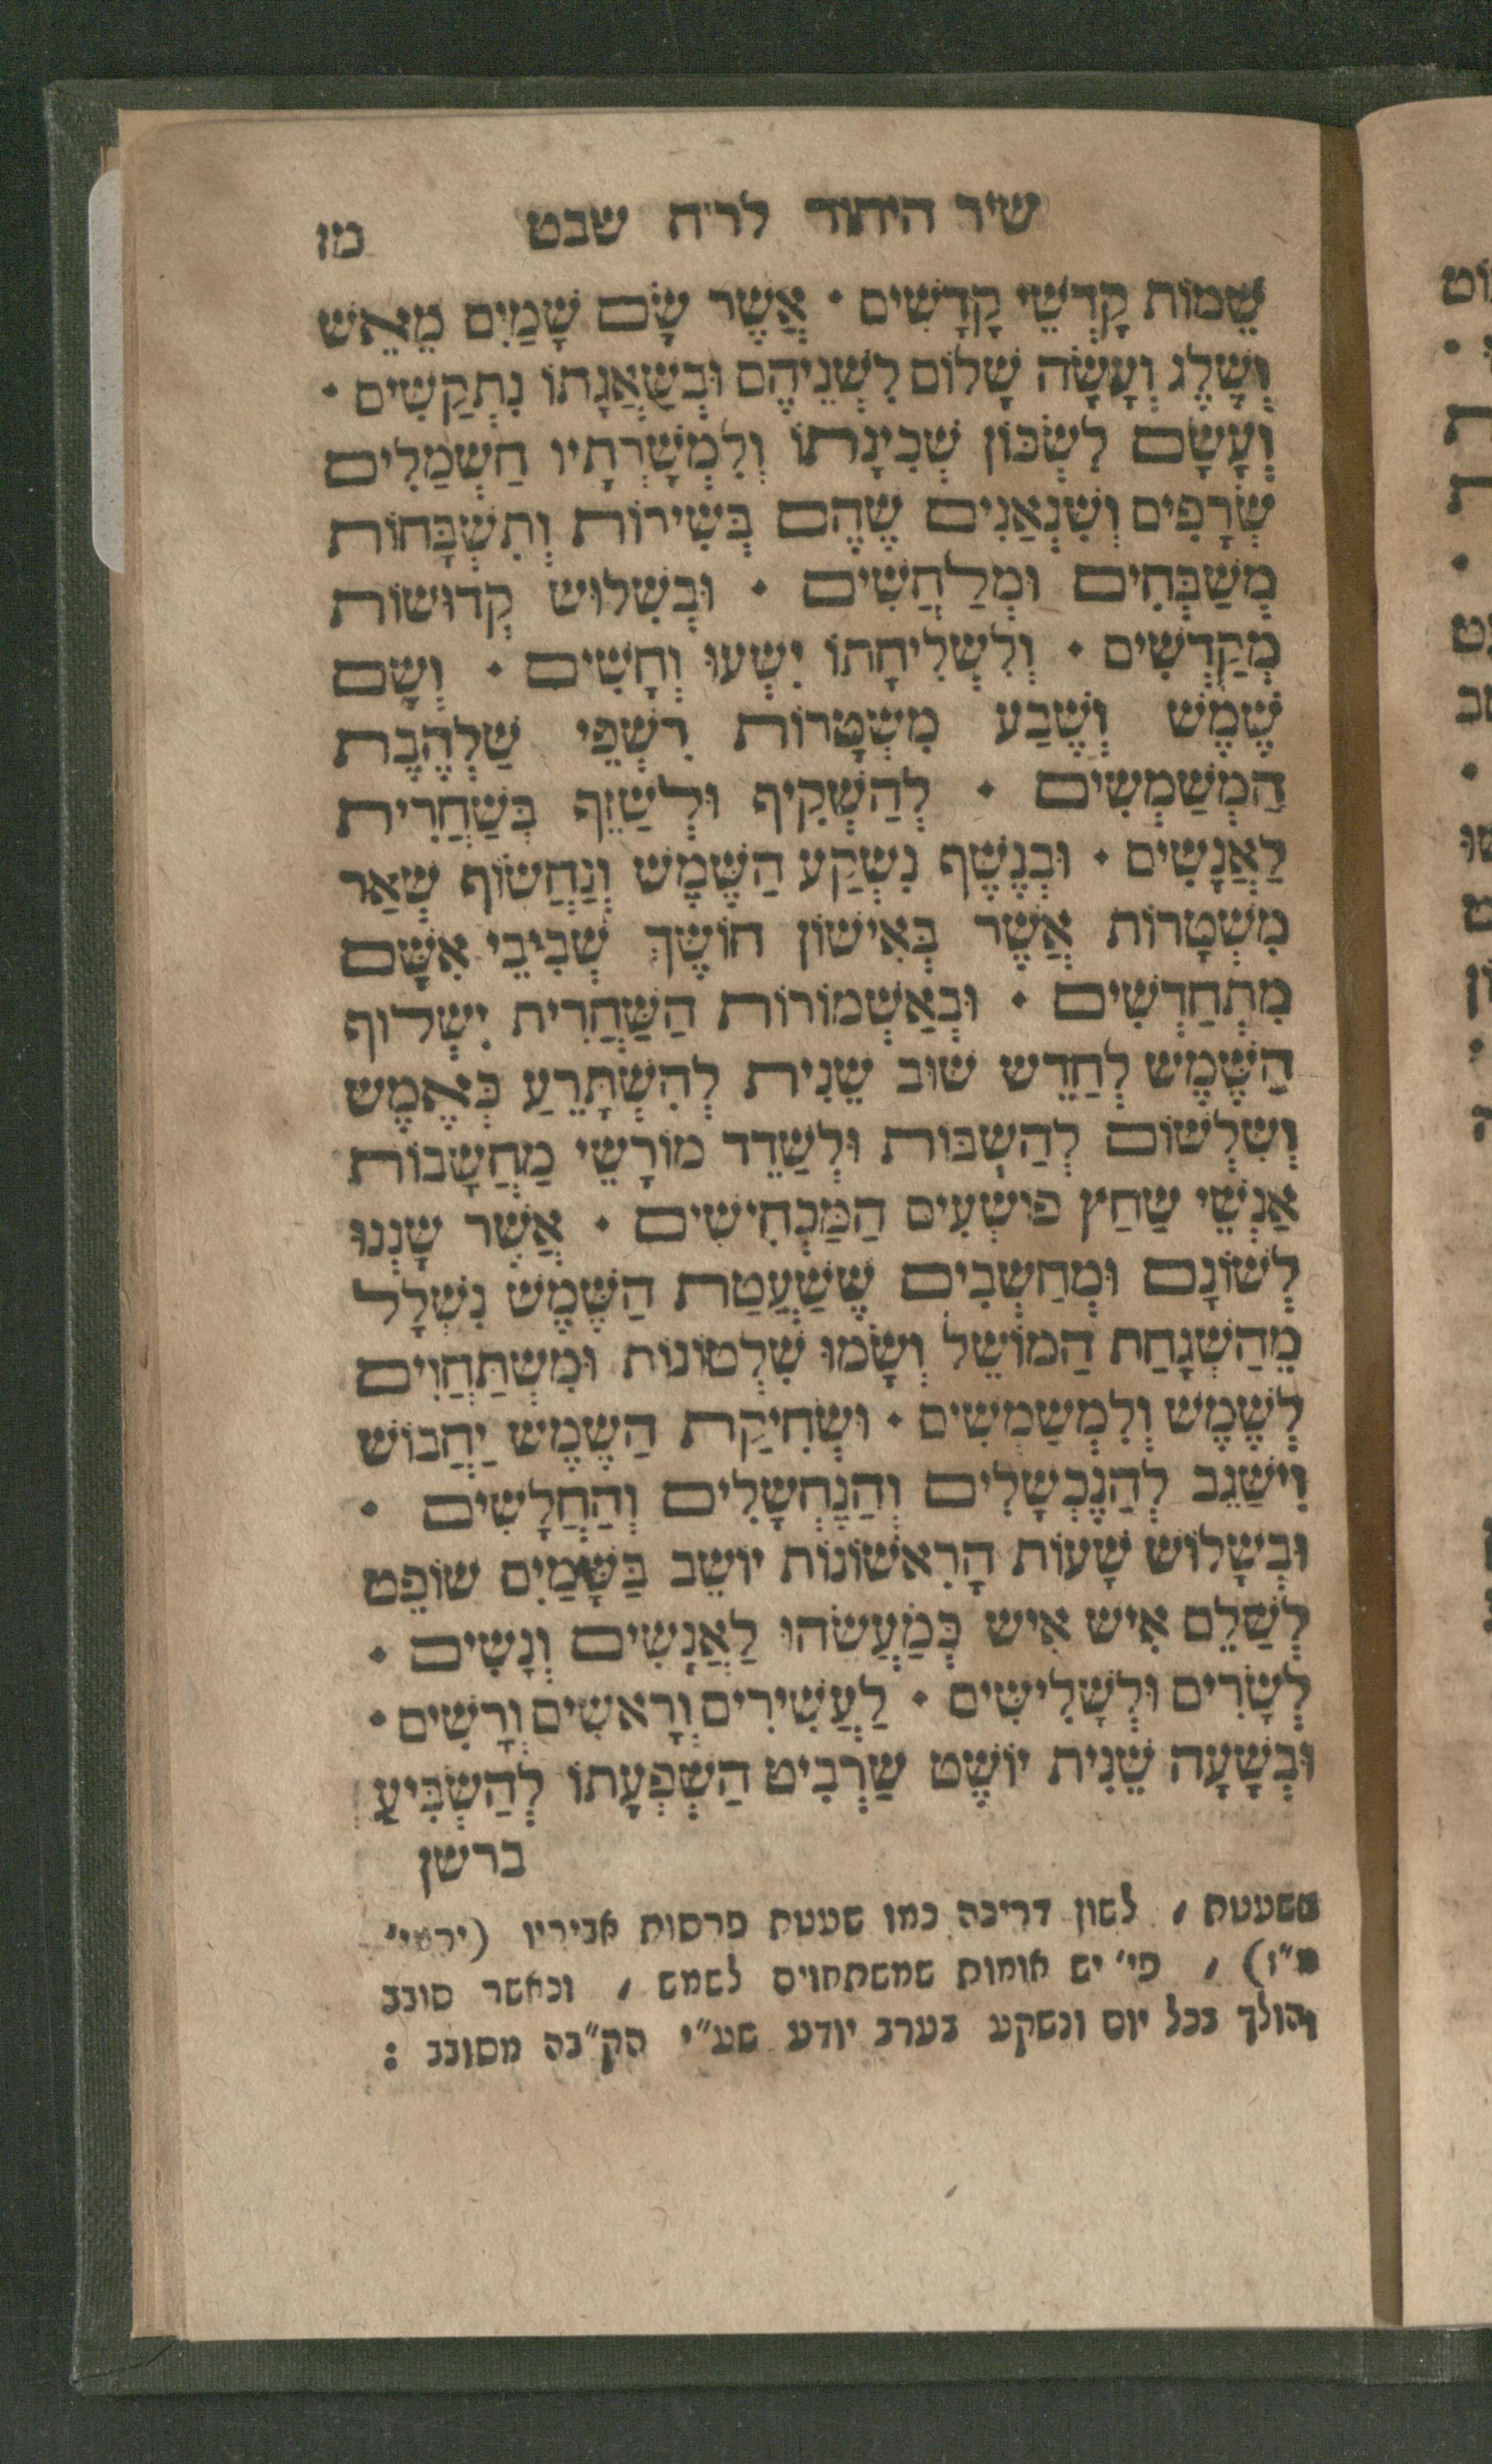 שיר היחוד לר״ח שבט מו
שֵׁמוֹת קָדְשֵׁי קָדָשִׁים · אֲשֶׁר שָׂם שָׁמַיִם מֵאֵשׁ
וְשֶׁלֶג וְעָשָׂה שָׁלוֹם לִשְׁנֵיהֶם וּבְשַׁאֲגָתוֹ נִתְקַשִׁים ·
וְעָשָׂם לִשְׁכּוֹן שְׁכִינָתוֹ וְלִמְשָׁרְתָיו חַשְׁמַלִים
שְׂרָפִים וְשִׁנְאַנִים שֶׁהֶם בְּשִׁירוֹת וְתִשְׁבָּחוֹת
מְשַׁבְּחִים וּמְלַחֲשִׁים · וּבְשִׁלוּשׁ קְדוּשׁוֹת
מְקַדְשִׁים · וְלִשְׁלִיחָתוֹ יִשְׁעוּ וְחָשִׁים · וְשָׂם
שֶׁמֶשׁ וְשֶׁבַע מִשְׁטָרוֹת רִשְׁפֵּי שַׁלְהֶבֶת
הַמְשַׁמְשִׁים · לְהַשְׁקִיף וּלְשַׁזֵף בְּשַׁחֲרִית
לַאֲנָשִׁים · וּבְנֶשֶׁף נִשְׁקַע הַשֶּׁמֶשׁ וְנַחֲשׂוֹף שְׁאַר
מִשְׁטָרוֹת אֲשֶׁר בְּאִישׁוֹן חוֹשֶׁךְ שְׁבִיבֵי אִשָּׁם
מִתְחַדְשִׁים · וּבְאַשְׁמוֹרוֹת הַשַּׁחֲרִית יִשְׁלוֹף
הַשֶּׁמֶשׁ לְחַדֵשׁ שׁוּב שֵׁנִית לְהִשְׂתָּרֵעַ כְּאֶמֶשׁ
וְשִׁלְשׁוֹם לְהַשְׁבּוֹת וּלְשַׁדֵד מוֹרָשֵׁי מַחֲשָׁבוֹת
אַנְשֵׁי שַׁחַץ פּוֹשְׁעִים הַמַּכְחִישִׁים · אֲשֶׁר שָׁנְנוּ
לְשׁוֹנָם וּמְחַשְׁבִים שֶׁשַׁעֲטַת הַשֶּׁמֶשׁ נִשְׁלָל
מֵהַשְׁגָחַת הַמוֹשֵׁל וְשָׂמוּ שִׁלְטוֹנוֹת וּמִשְׁתַּחֲוִים
לְשֶׁמֶשׁ וְלִמְשַׁמְשִׁים · וּשְׁחִיקַת הַשֶּׁמֶשׁ יַחֲבוֹשׁ
וִישַׂגֵב לְהַנֶכְשָׁלִים וְהַנֶחְשָׁלִים וְהַחֲלָשִׁים ·
וּבְשָׁלוֹשׁ שָׁעוֹת הָרִאשׁוֹנוֹת יוֹשֵׁב בַּשָּׁמַיִם שׁוֹפֵט
לְשַׁלֵם אִישׁ אִישׁ כְּמַעֲשֵׂהוּ לַאֲנָשִׁים וְנָשִׁים ·
לְשָׂרִים וּלְשָׁלִישִׁים · לַעֲשִׁירִים וְרָאשִׁים וְרָשִׁים ·
וּבְשָׁעָה שֵׁנִית יוֹשֶׁט שַׁרְבִיט הַשְׁפְּעָתוֹ לְהַשְׂבִּיעַ
ברשן
ששעטת , לשון דריכה כמו שעטת פרסות אביריו (ירמי׳
מ״ז) , פי׳ יש אומות שמשתחוים לשמש , וכאשר סובב
והולך בכל יום ונשקע בערב יודע שע״י הק״בה מסובב :